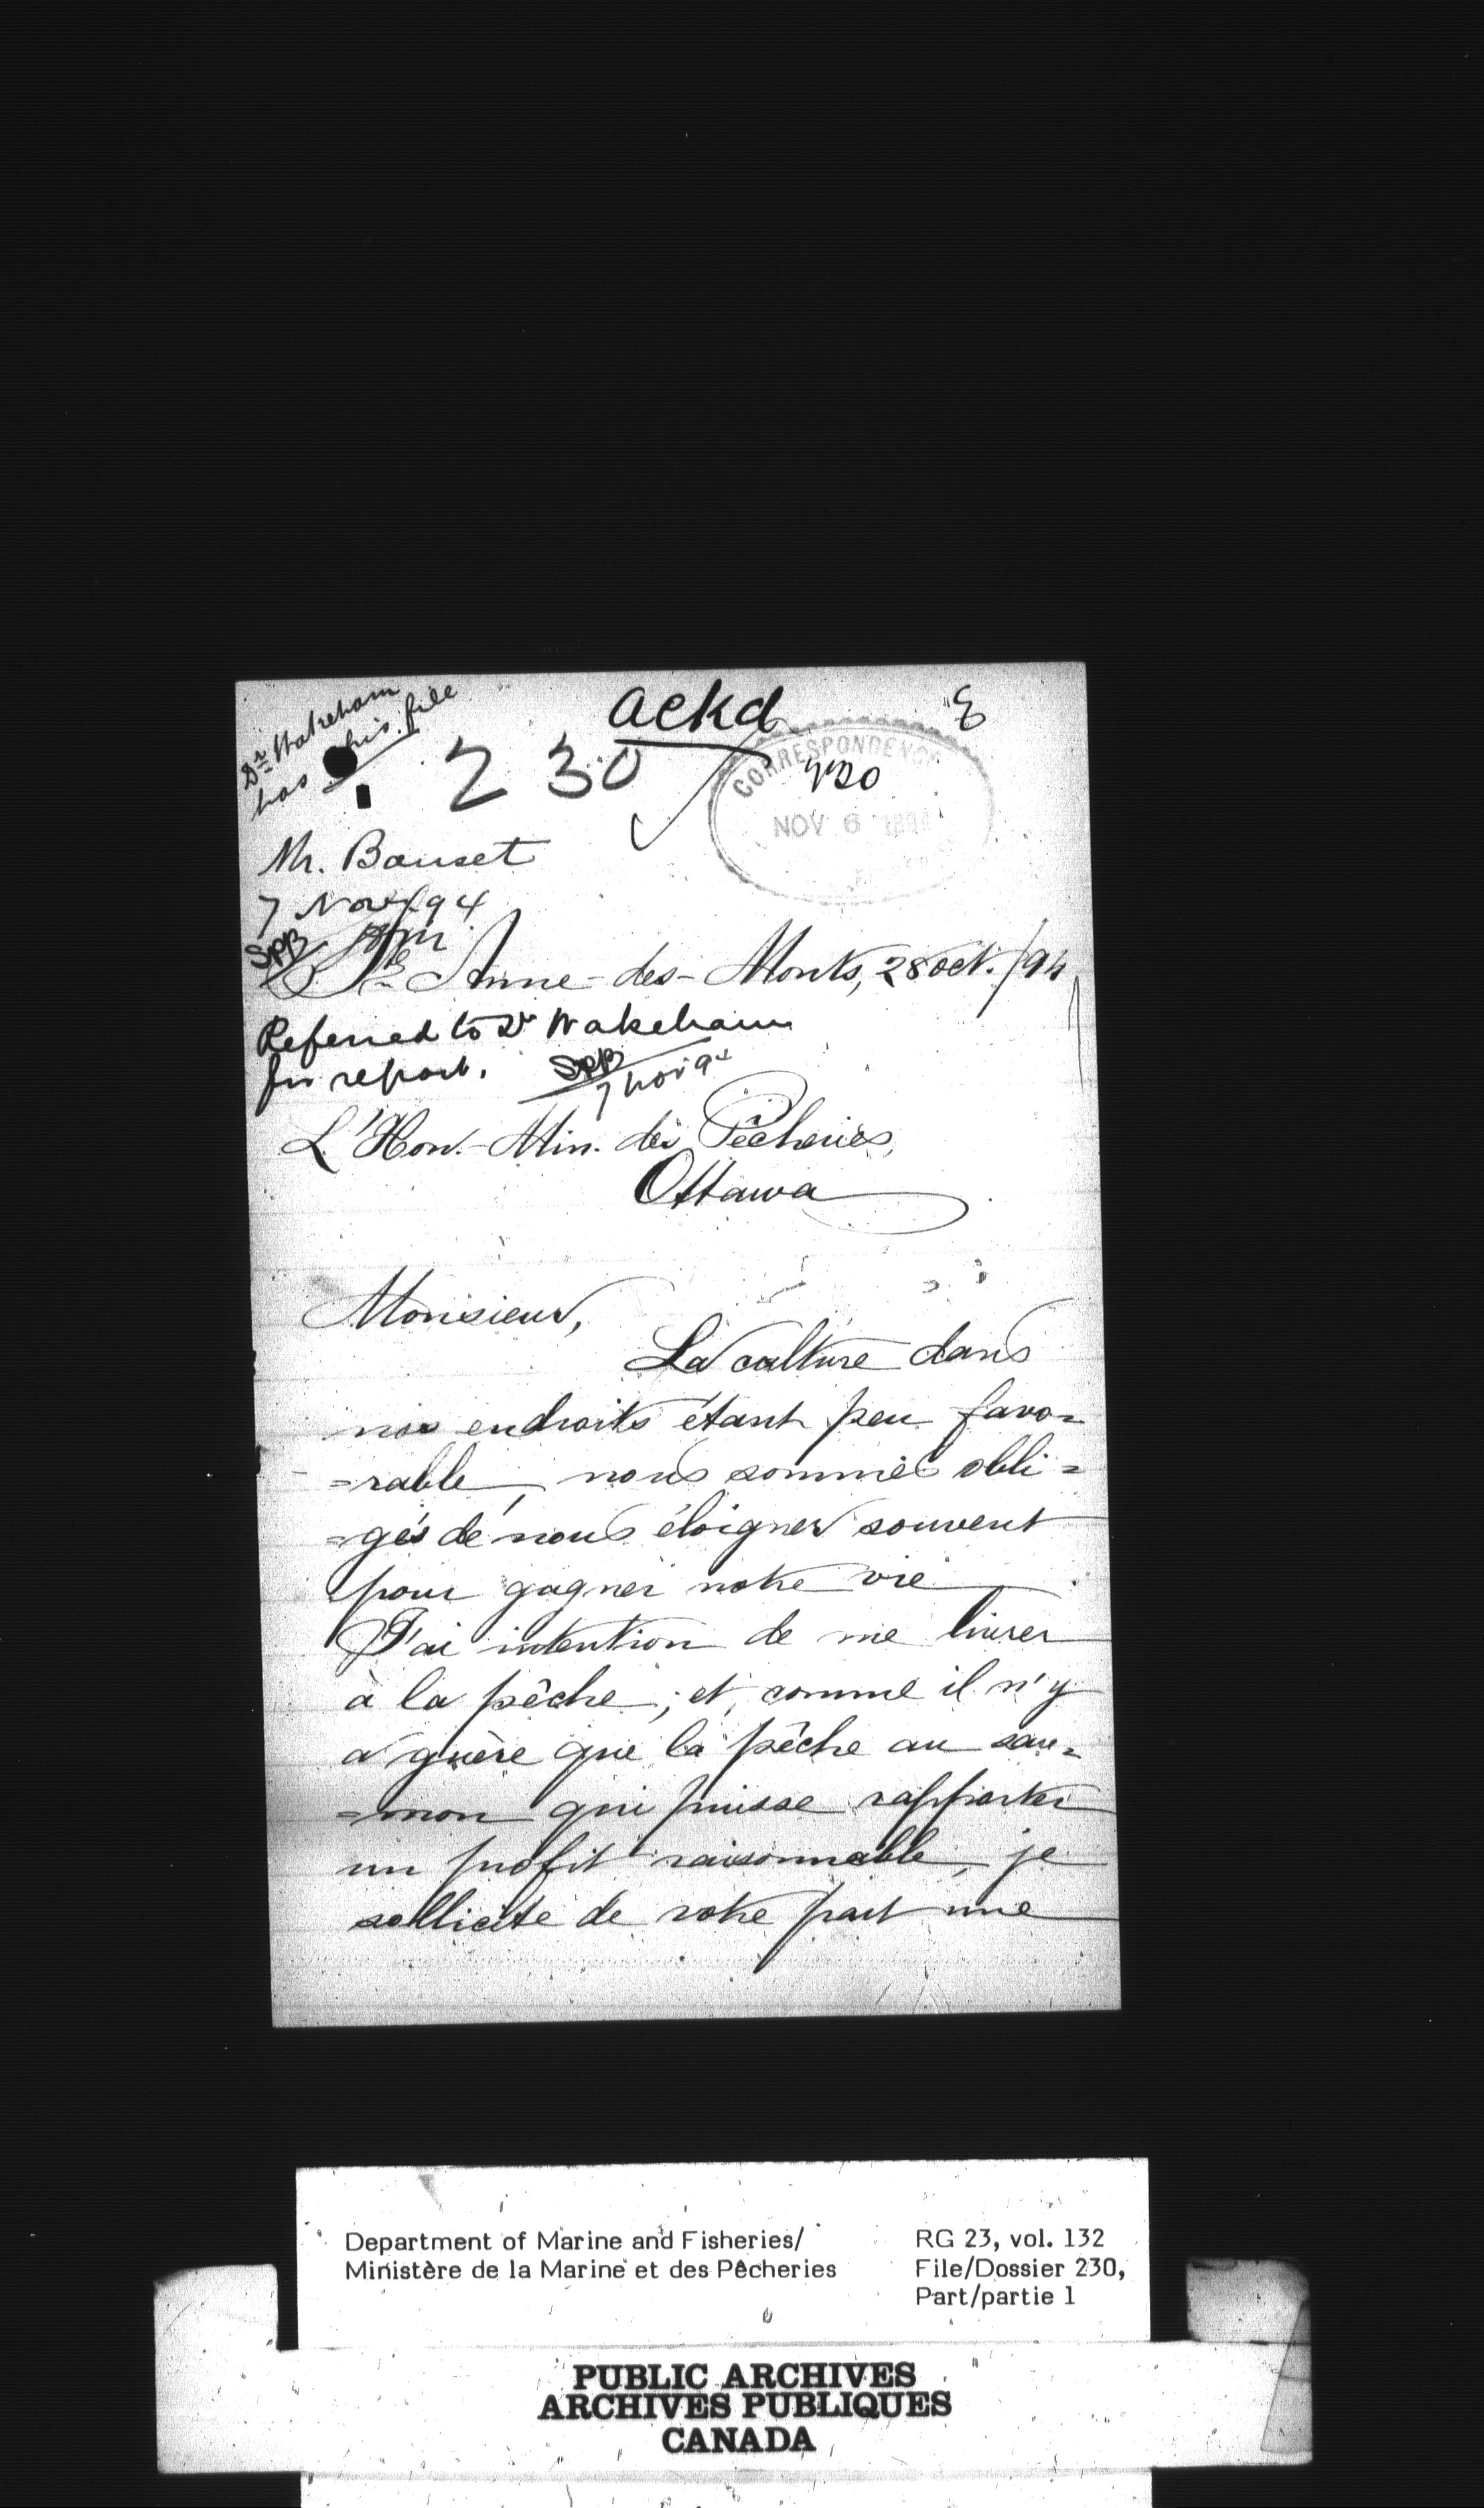 Dr Wakeham
has this file
ackd
E
230
CORRESPONDENCE
420
NOV 6 1894
Mr. Bauset
7 Nov/94
SPB
Ste Anne-des-Monts, 28 oct./94
Referred to Dr Wakeham
for report. SPB
7 Nov 94
L'Hon. Min. des Pêcheries,
Ottawa
Monsieur,
La culture dans
nos endroits étant peu favo=
=rable, nous sommes obli=
=gés de nous éloigner souvent
pour gagner notre vie.
J'ai intention de me livrer
à la pêche; et, comme il n'y
a guère que la pêche au sau=
=mon qui puisse rapporter
un profit raisonnable, je
sollicite de votre part une
Department of Marine and Fisheries/
Ministère de la Marine et des Pêcheries
RG 23, vol. 132
File/Dossier 230,
Part/partie 1
PUBLIC ARCHIVES
ARCHIVES PUBLIQUES
CANADA